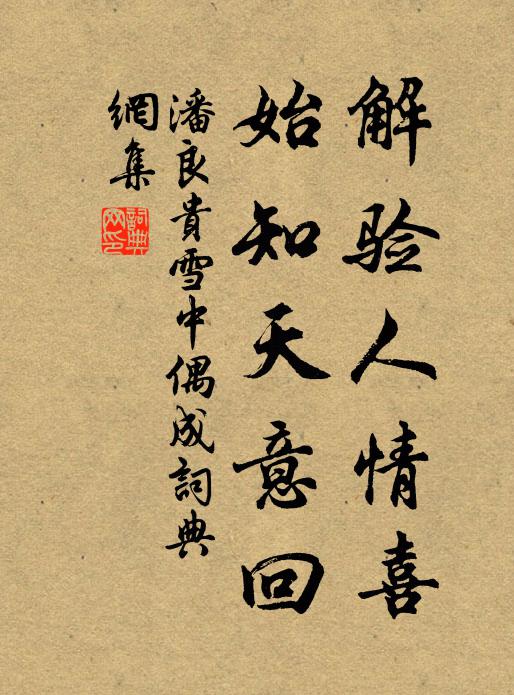 解验人情喜
始知天意回
潘良貴雪中偶成詞典
網集
詞典
网印